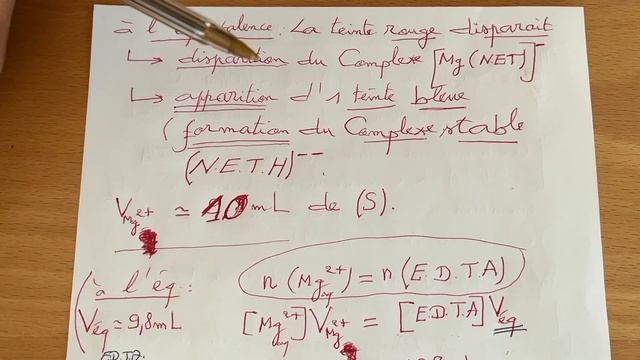 à l'équivalence : La teinte rouge disparait
↳ disparition du Complexe [Mg(NET)]⁻
↳ apparition d'1 teinte bleue
(formation du Complexe stable
(N.E.T.H)⁻⁻.
V_Mg²⁺ ≃ 10 mL de (S).
à l'éq :
n (Mg²⁺aq) = n (E.D.T.A)
Véq ≃ 9,8mL
[Mg²⁺aq] V_Mg²⁺ = [E.D.T.A] Véq
E.D.T.A